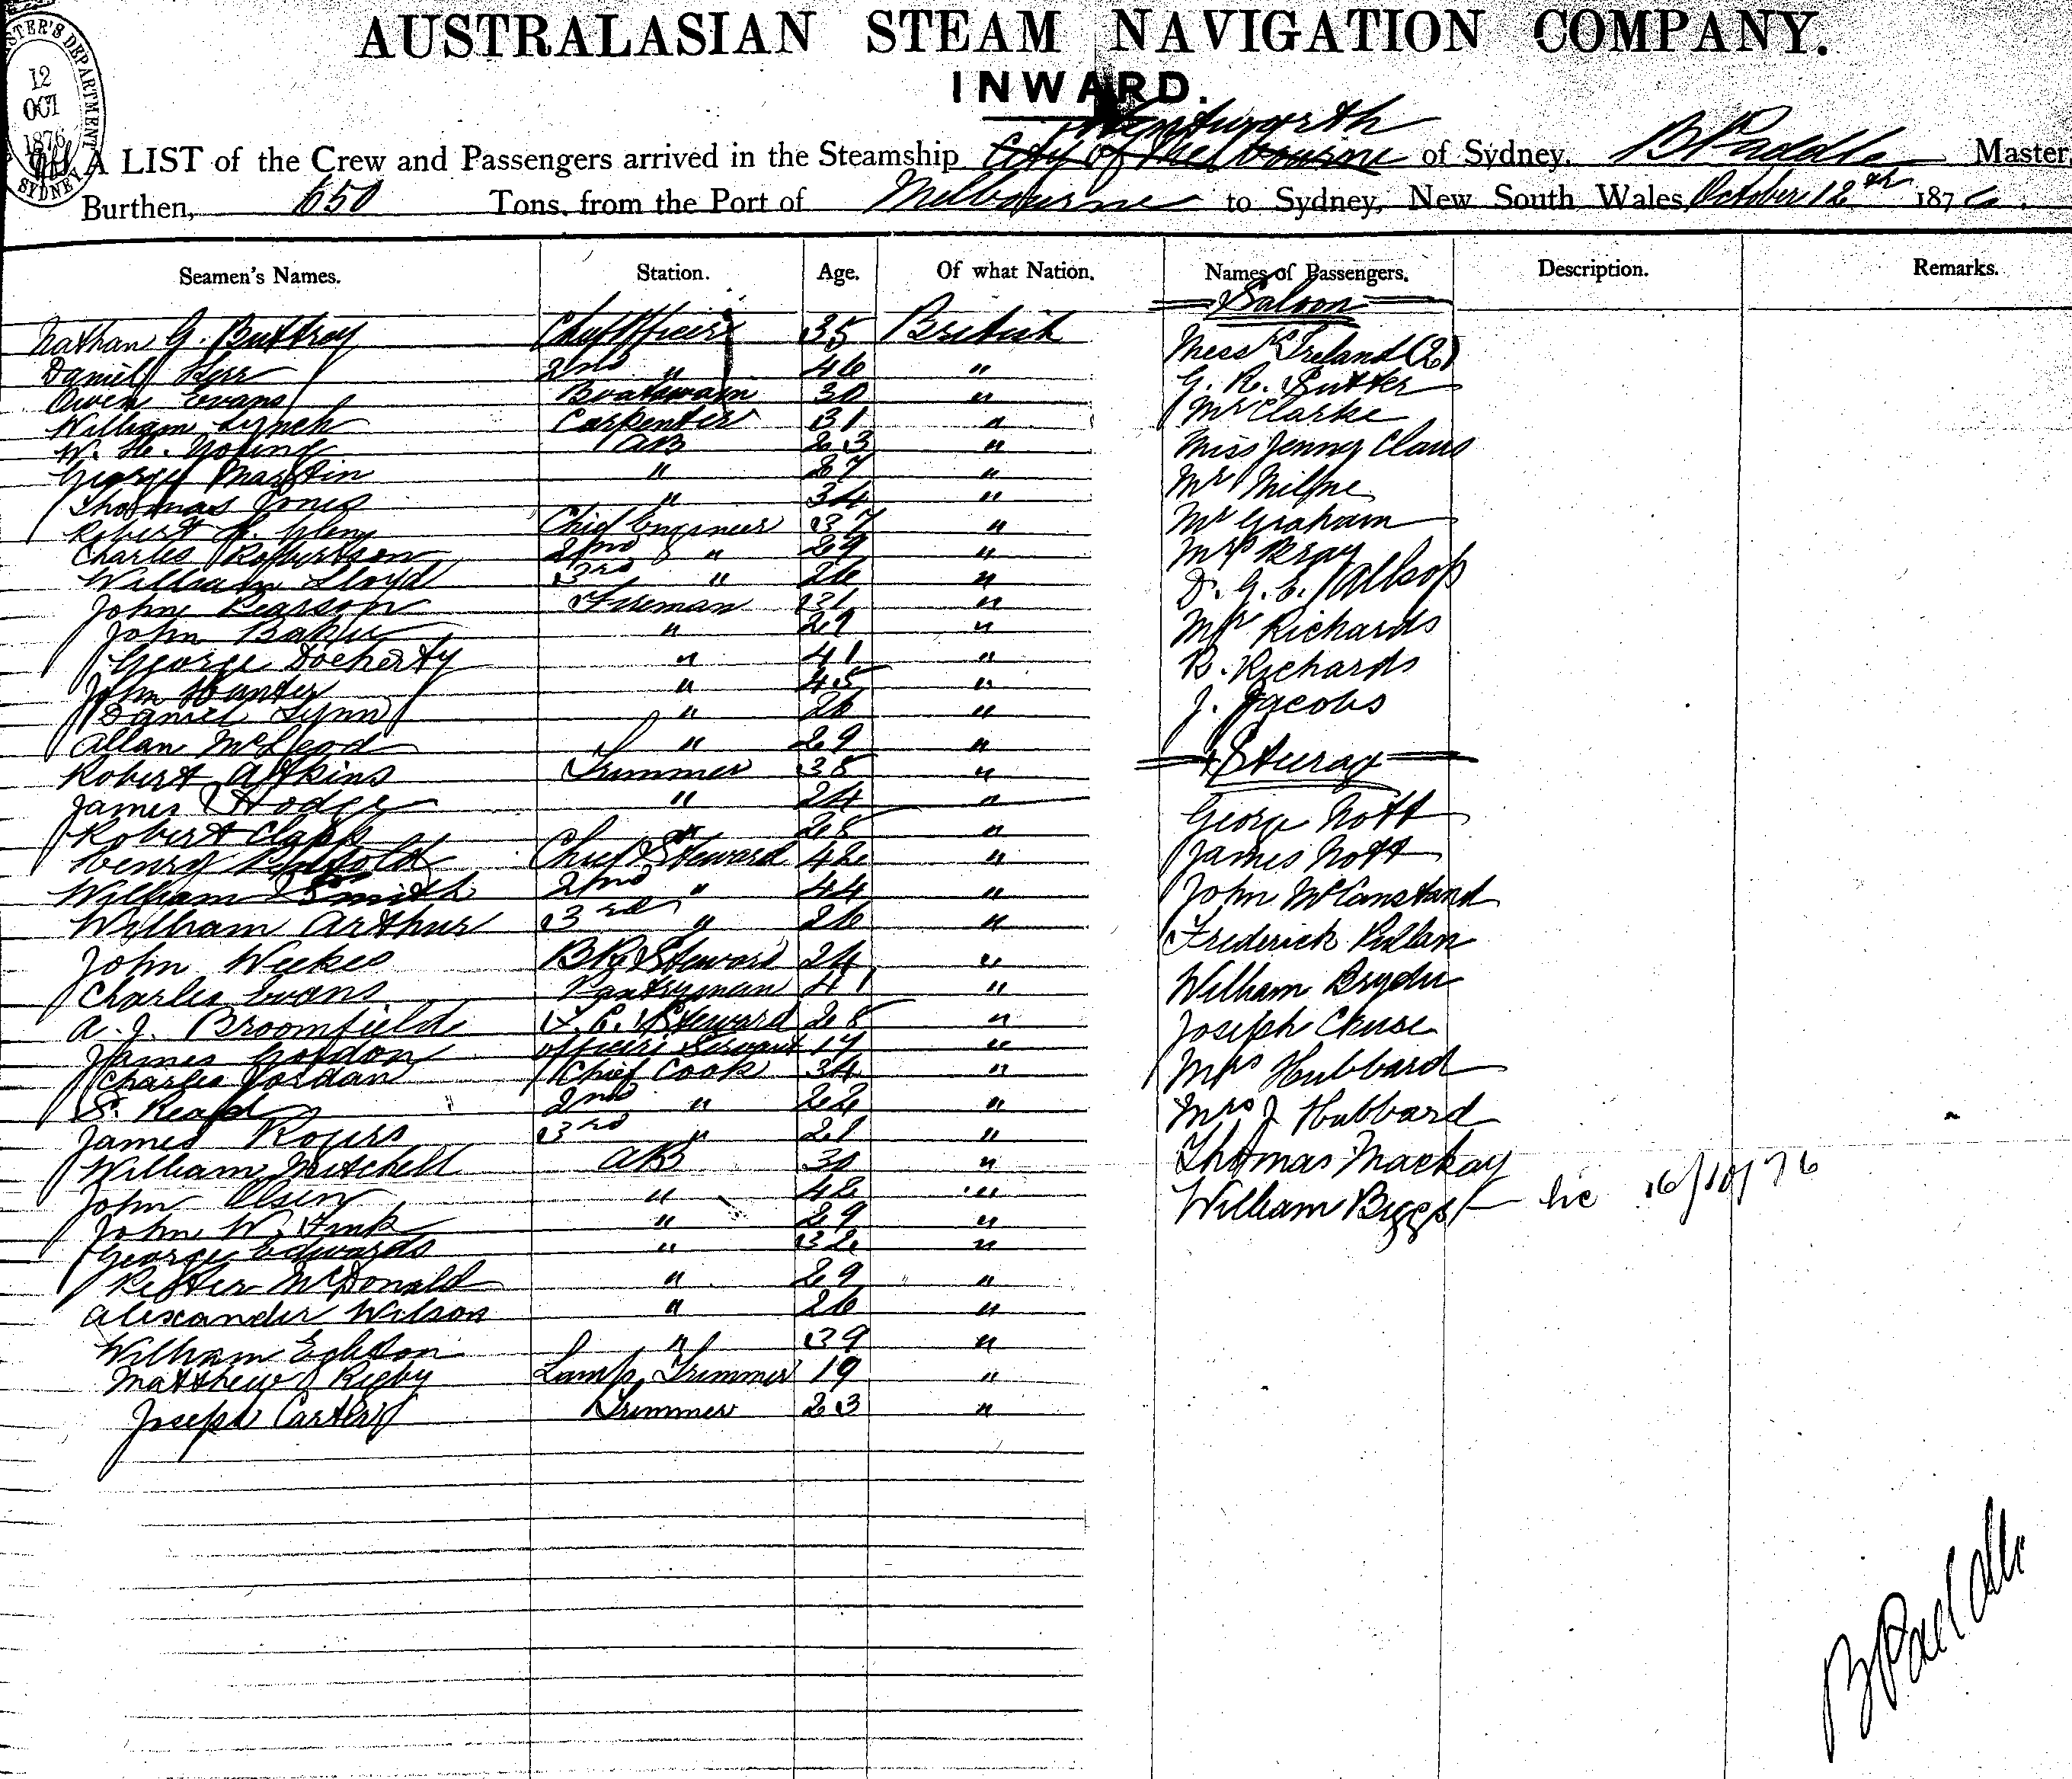 AUSTRALASIAN STEAM NAVIGATION COMPANY.
INWARD.
12
OCT
1876
SYDNEY
Wentworth
A LIST of the Crew and Passengers arrived in the Steamship City of Melbourne of Sydney, B Paddle Master,
Burthen, 650 Tons, from the Port of Melbourne to Sydney, New South Wales, October 12th 1876.
Seamen's Names. Station. Age. Of what Nation. Names of Passengers. Description. Remarks.
Saloon
Nathan G. Buttray Chief Officer 35 British
Daniel Kerr 2nd " 46 "
Owen Evans Boatswain 30 "
William Lynch Carpenter 31 "
W. H. AB 23 "
George Martin " 27 "
Thomas Jones " 34 "
Robert Chief Engineer 37 "
Charles Robertson 2nd " 29 "
William Lloyd 3rd " 26 "
John Pearson Fireman 31 "
John Baker " 29 "
George Docherty " 41 "
John Hunter " 45 "
Daniel Lynn " 26 "
Allan McLeod " 29 "
Robert Atkins Trimmer 38 "
James Hodge " 24 "
Robert Clapp " 28 "
Henry Chief Steward 42 "
William Smith 2nd " 44 "
William Arthur 3rd " 26 "
John Weekes Steward 24 "
Charles Evans Pantryman 41 "
A. J. Broomfield Steward 28 "
James Gordon Officers Servant 17 "
Charles Jordan Chief Cook 34 "
S. Read 2nd " 22 "
James Rogers 3rd " 21 "
William Mitchell AB 30 "
John Olsen " 42 "
John W. Fink " 29 "
George Edwards " 32 "
Peter McDonald " 29 "
Alexander Wilson " 26 "
William Egleton " 39 "
Matthew Rigby Lamp Trimmer 19 "
Joseph Carter Trimmer 23 "
Messrs Ireland (2)
G. R. Rutter
Mr Clarke
Miss Jenny Claus
Mr Milne
Mr Graham
Mrs Bray
D. G. E. Allsop
Mr Richards
R. Richards
J. Jacobs
Steerage
George Nott
James Nott
John McCanstand
Frederick Pullan
William Bryden
Joseph Cruse
Mrs Hubbard
Mrs J Hubbard
Thomas Mackay
William Biggs 16/10/76
B Paddle